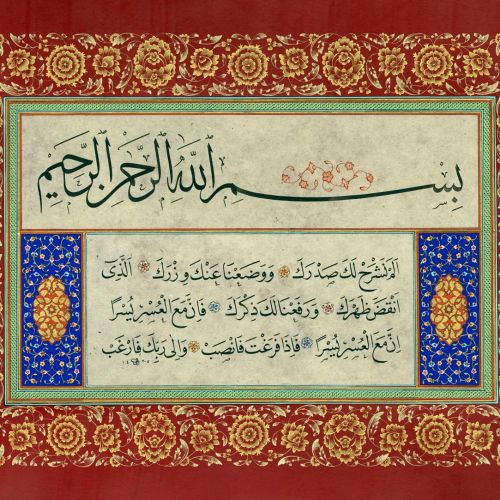 بِسْمِ اللهِ الرَّحْمٰنِ الرَّحِيْمِ
اَلَمْ نَشْرَحْ لَكَ صَدْرَكَ وَوَضَعْنَا عَنْكَ وِزْرَكَ اَلَّذِى
اَنْقَضَ ظَهْرَكَ وَرَفَعْنَا لَكَ ذِكْرَكَ فَاِنَّ مَعَ الْعُسْرِ يُسْرًا
اِنَّ مَعَ الْعُسْرِ يُسْرًا فَاِذَا فَرَغْتَ فَانْصَبْ وَاِلٰى رَبِّكَ فَارْغَبْ